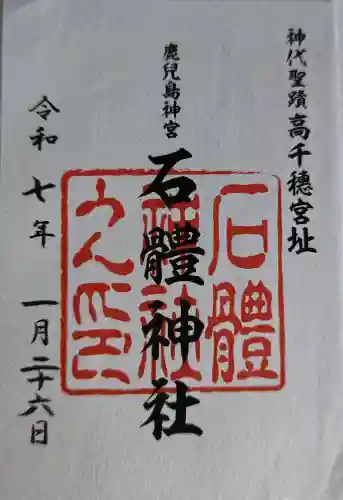 神代聖蹟高千穂宮址
鹿兒島神宮
石體神社
石體
神社
令和七年一月二十六日